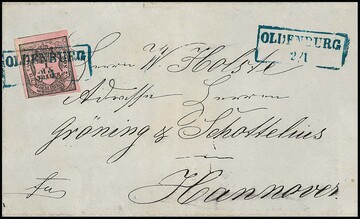 OLDENBURG
OLDENBURG
2/1
Herrn W. Holste
Adresse Herren
Gröning & Schottelius
Hannover.